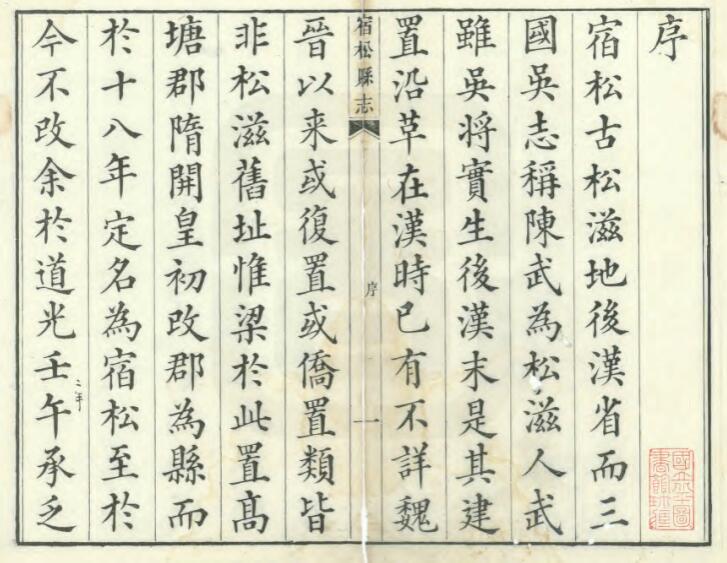 序
宿松古松滋地後漢省而三
國吳志稱陳武為松滋人武
雖吳将實生後漢末是其建
置沿革在漢時已有不詳魏
宿松縣志
序
一
晉以来或復置或僑置類皆
非松滋舊址惟梁於此置高
塘郡隋開皇初改郡為縣而
於十八年定名為宿松至於
今不改余於道光壬午承乏
二年